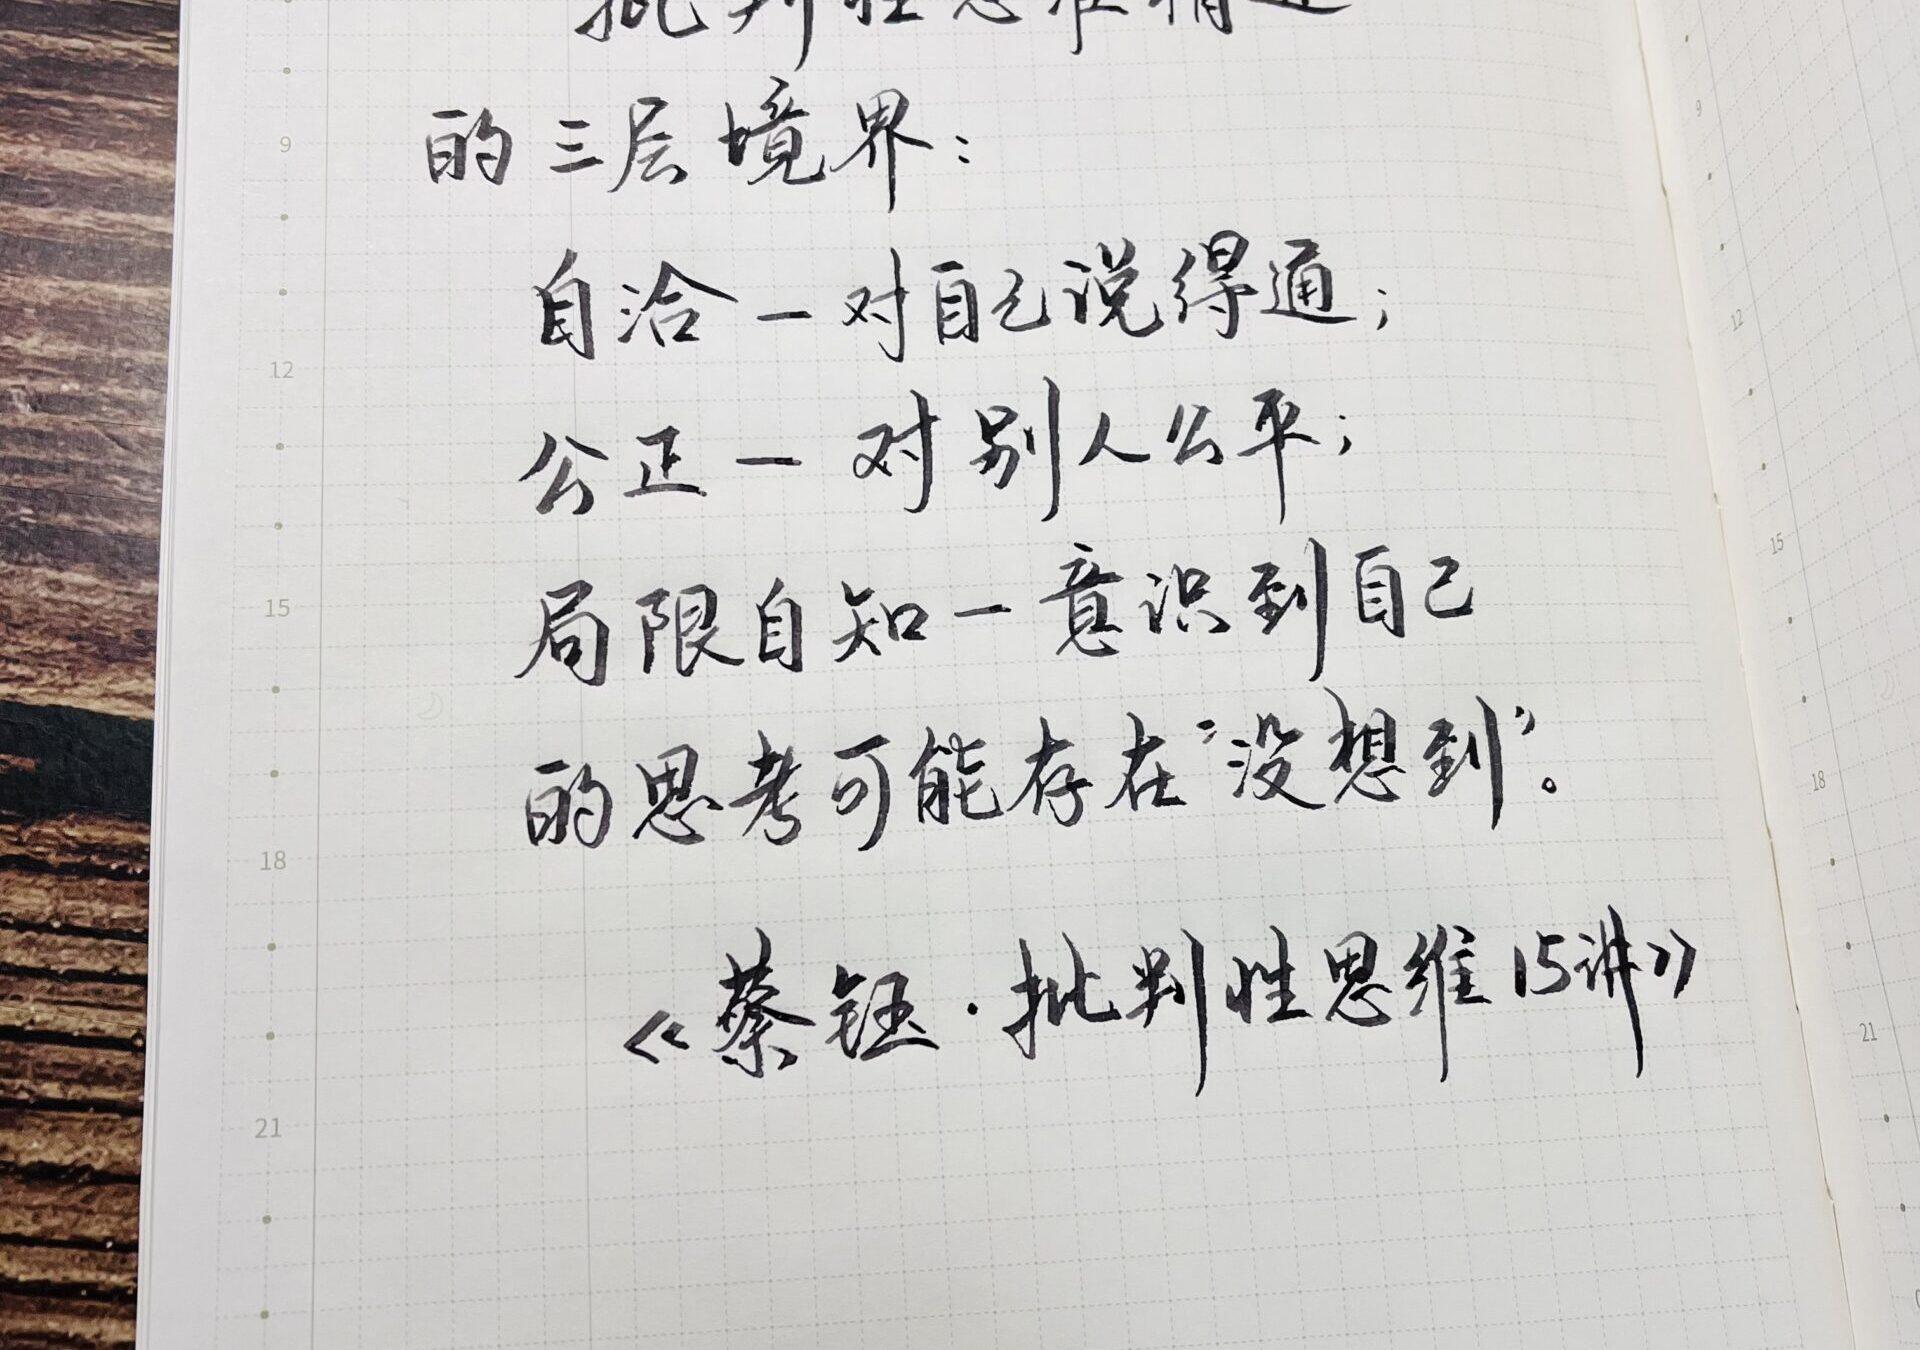 批判性思维精进
的三层境界：
自洽一对自己说得通；
公正一对别人公平；
局限自知一意识到自己
的思考可能存在“没想到”。
《蔡钰·批判性思维15讲》
9
12
15
18
21
9
12
15
18
21